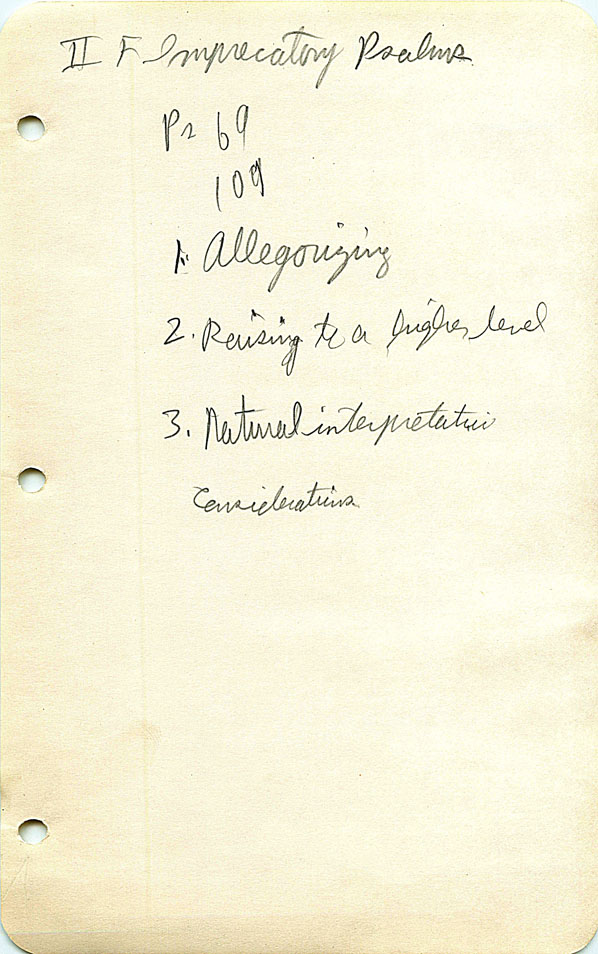 II F Imprecatory Psalms
Ps 69
109
1. Allegorizing
2. Raising to a higher level
3. Natural interpretation
Considerations